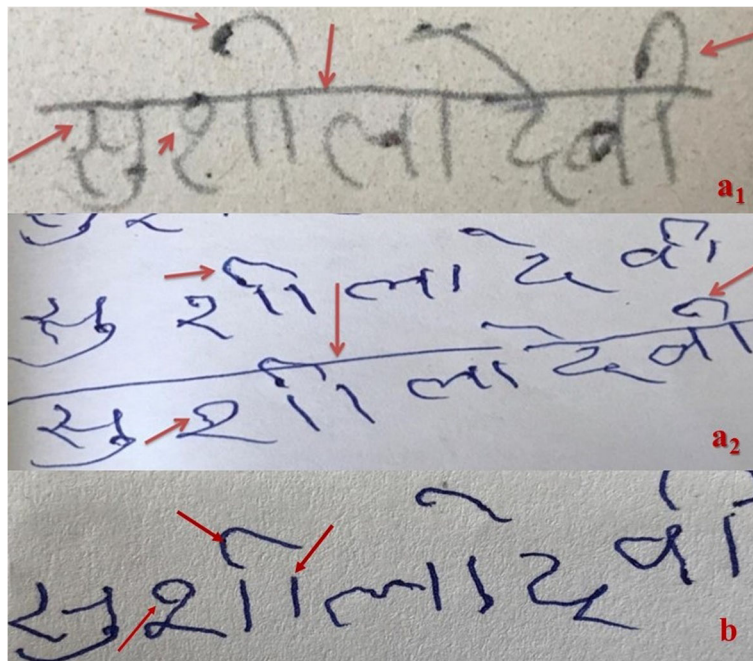 सुशीला देवी
a1
सुशीला देवी
सुशीला देवी
a2
सुशीला देवी
b